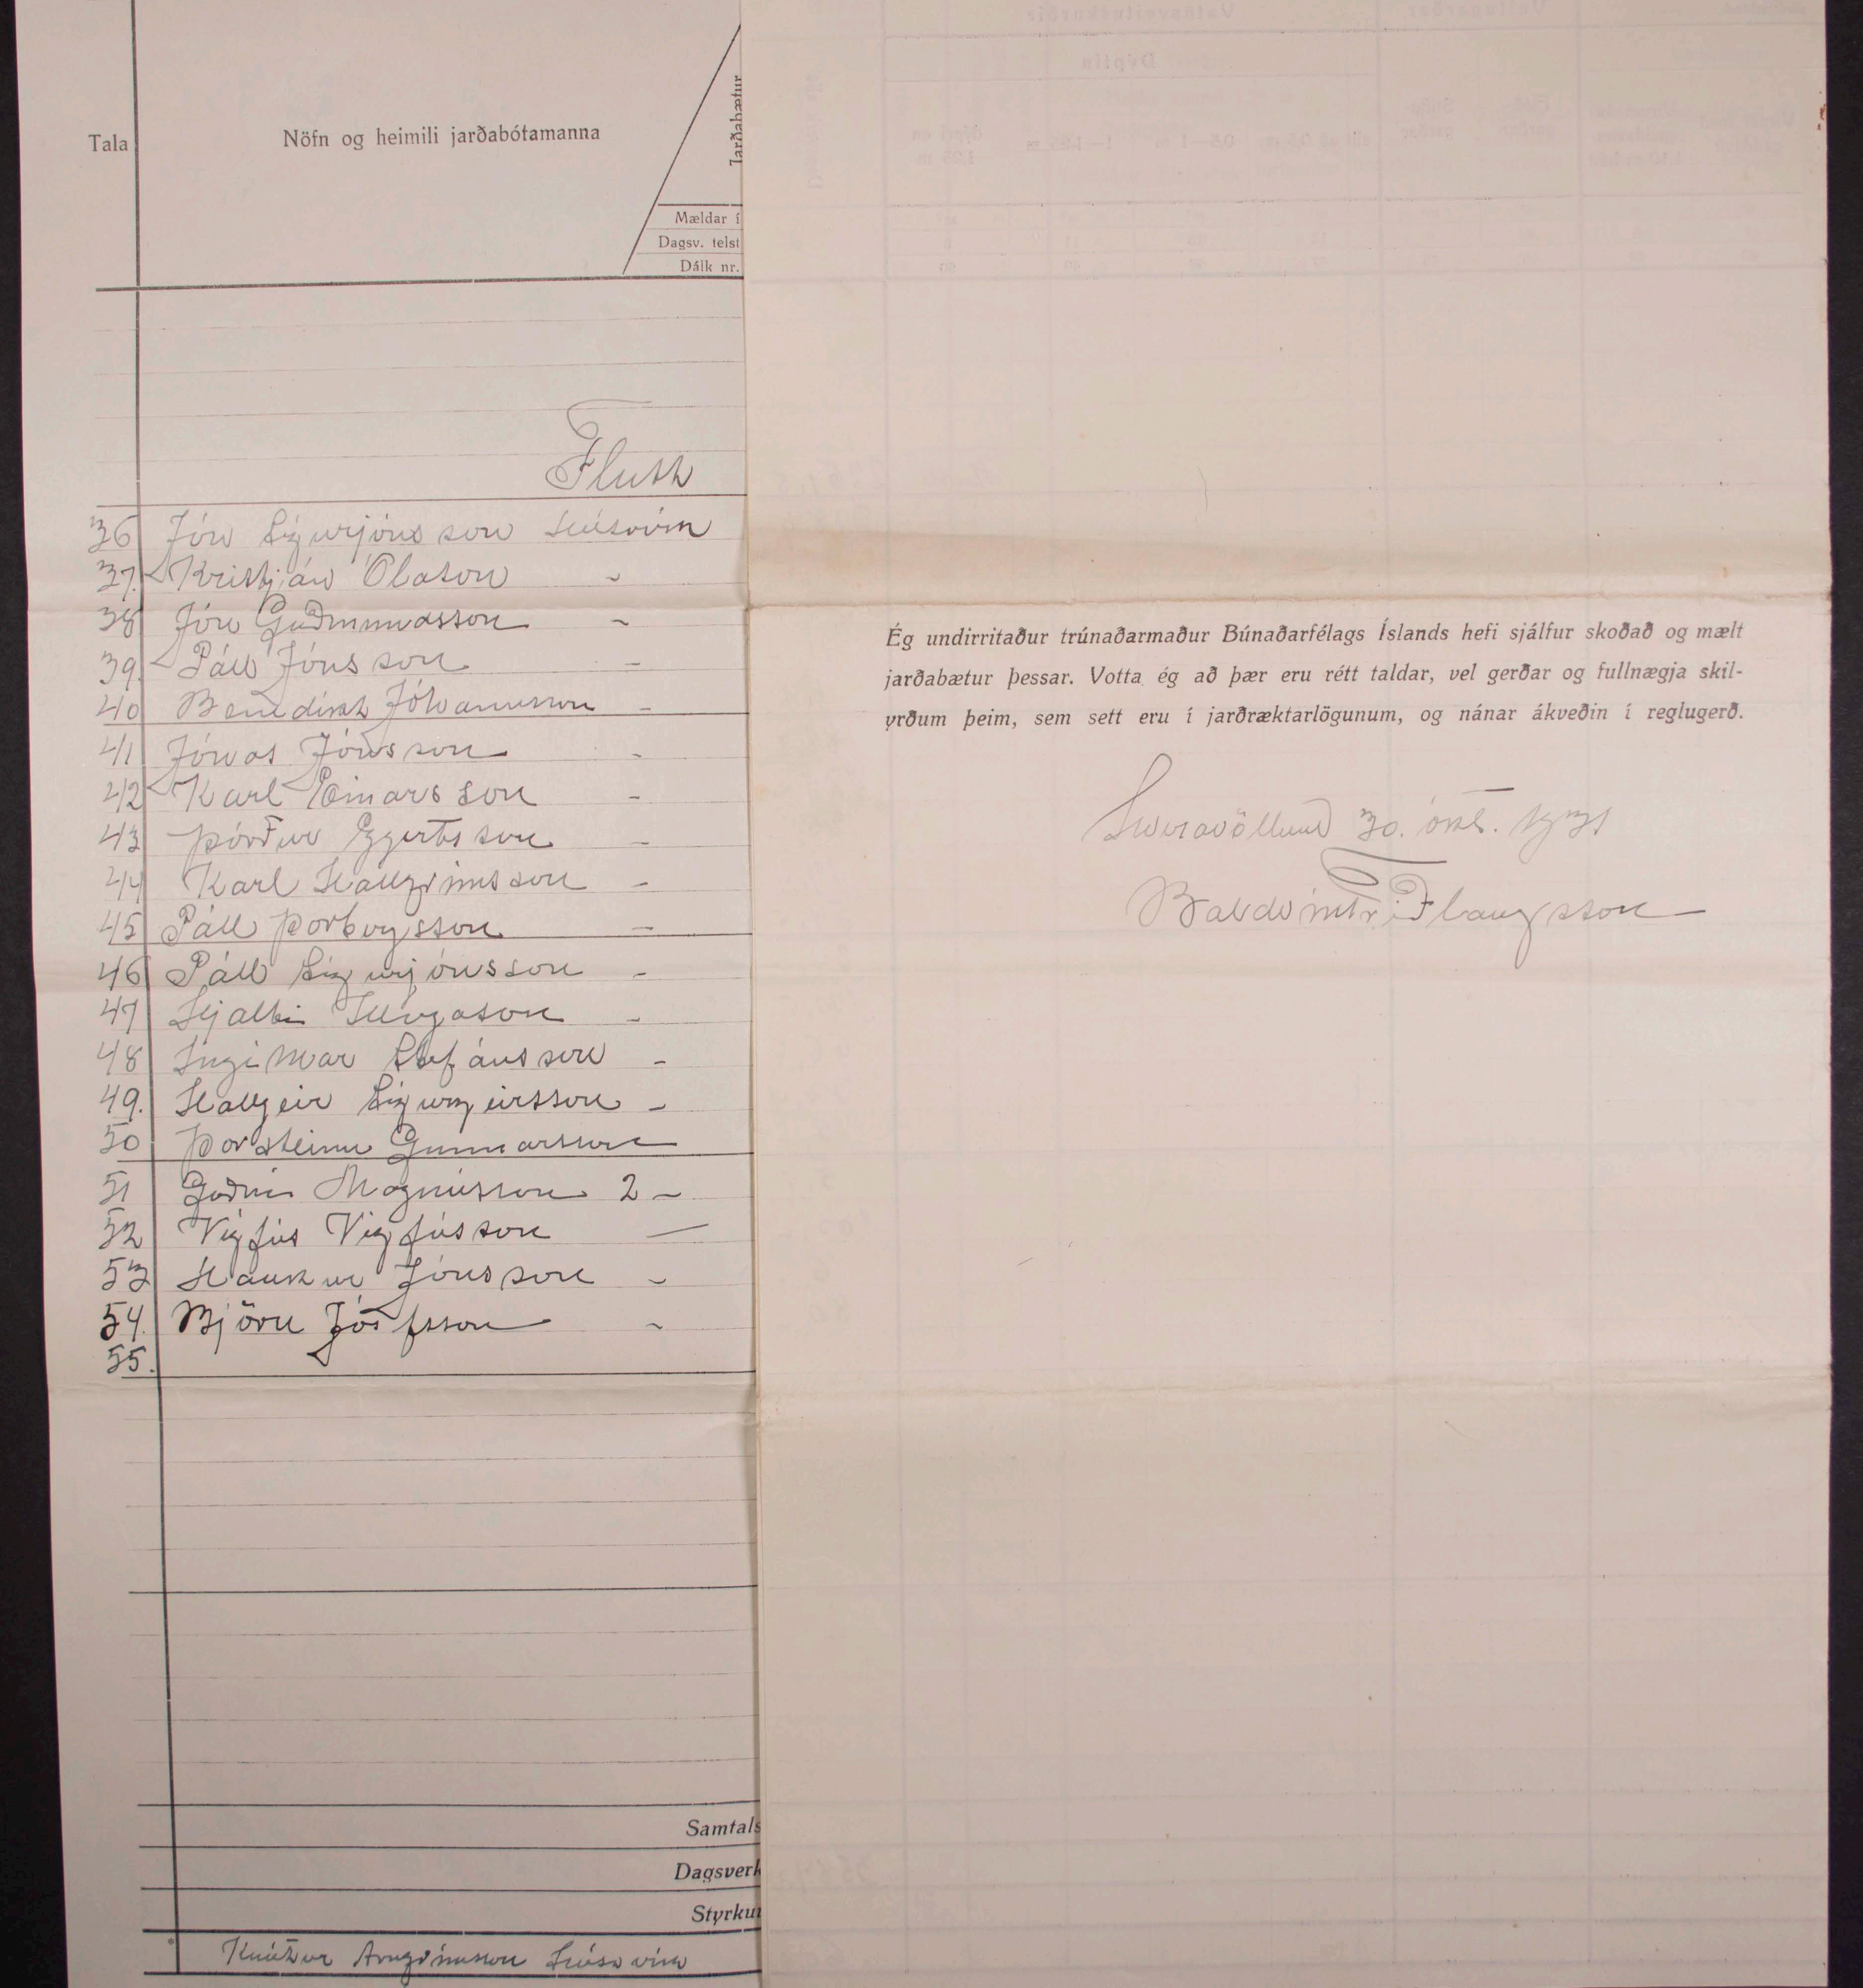 Tala
Nöfn og heimili jarðabótamanna
Jarðabætur
Mældar í
Dagsv. telst
Dálk nr.
Flutt
36 Jón Sigurjónsson Húsavík
37. Kristján Ólason -
38 Jón Guðmundsson -
39. Páll Jónsson -
40 Benedikt Jóhannsson -
41 Jónas Jónsson -
42 Karl Einarsson -
43 Þórður Eggertsson -
44 Karl Hallgrímsson -
45 Páll Þorbergsson -
46 Páll Sigurjónsson -
47 Hjalti Illugason -
48 Ingimar Stefánsson -
49. Hallgeir Sigurgeirsson -
50 Þorsteinn Gunnarsson
51 Guðni Magnússon 2 -
52 Vigfús Vigfússon -
53 Haukur Jónsson -
54. Björn Jósefsson -
55.
Samtals
Dagsverk
Styrkur
Knútur Arngrímsson Húsavík
Ég undirritaður trúnaðarmaður Búnaðarfélags Íslands hefi sjálfur skoðað og mælt
jarðabætur þessar. Votta ég að þær eru rétt taldar, vel gerðar og fullnægja skil-
yrðum þeim, sem sett eru í jarðræktarlögunum, og nánar ákveðin í reglugerð.
Hveravöllum 30. okt. 1931
Baldvin Friðlaugsson